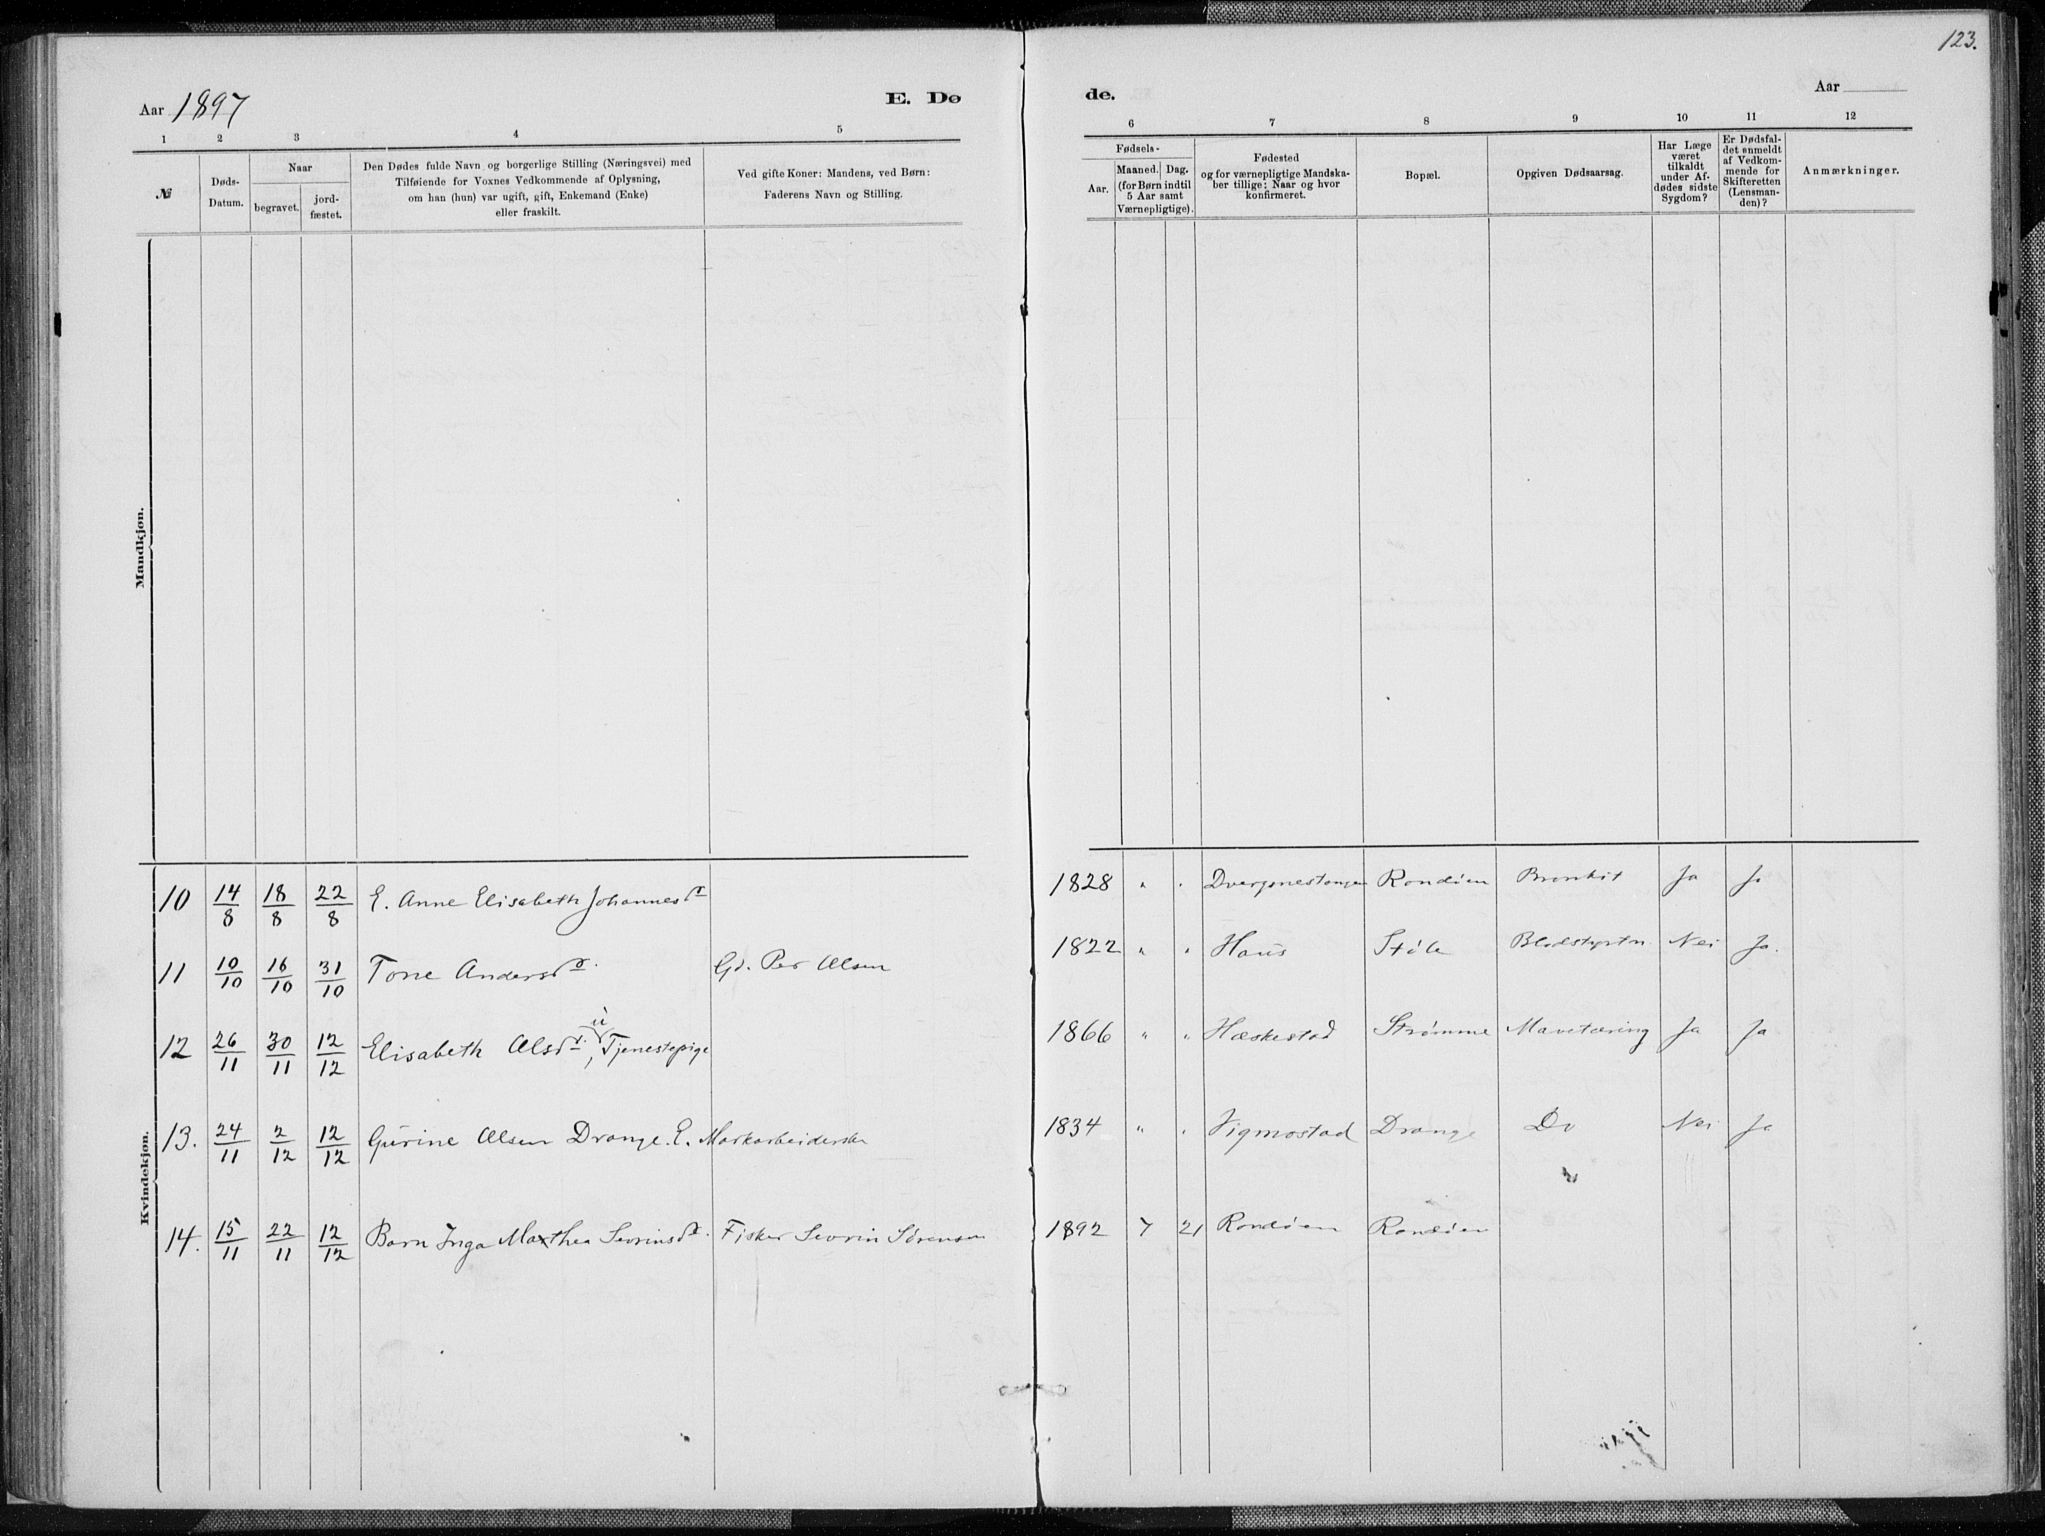 123.
Aar 1897
E. Dø
de.
Aar
1 2 3 4 5
6 7 8 9 10 11 12
№
Døds-
Datum.
Naar
begravet.
jord-
fæstet.
Den Dødes fulde Navn og borgerlige Stilling (Næringsvei) med
Tilføiende for Voxnes Vedkommende af Oplysning,
om han (hun) var ugift, gift, Enkemand (Enke)
eller fraskilt.
Ved gifte Koner: Mandens, ved Børn:
Faderens Navn og Stilling.
Fødsels-
Aar.
Maaned. Dag.
(for Børn indtil
5 Aar samt
Værnepligtige).
Fødested
og for værnepligtige Mandska-
ber tillige: Naar og hvor
konfirmeret.
Bopæl.
Opgiven Dødsaarsag.
Har Læge
været
tilkaldt
under Af-
dødes sidste
Sygdom?
Er Dødsfal-
det anmeldt
af Vedkom-
mende for
Skifteretten
(Lensman-
den)?
Anmærkninger.
Mandkjøn.
Kvindekjøn.
10 14/8 18/8 22/8 E. Anne Elisabeth Johannesdr 1828 " " Dvergsnestangen Randøen Bronkit Ja Ja
11 10/10 16/10 31/10 Tone Andersdr. Gd. Per Olsen 1822 " " Haus Støle Blodstyrtn. Nei Ja.
12 26/11 30/11 12/12 Elisabeth Olsdr. ú, Tjenestepige 1866 " " Hæskestad Strømme Mavetæring Ja Ja
13. 24/11 2/12 12/12 Gurine Olsen Drange. E. Markarbeiderske 1834 " " Vigmostad Drange Do Nei Ja
14. 15/11 22/11 12/12 Barn Inga Marthea Sevrinsdr. Fisker Sevrin Sørensen 1892 7 21 Randøen Randøen